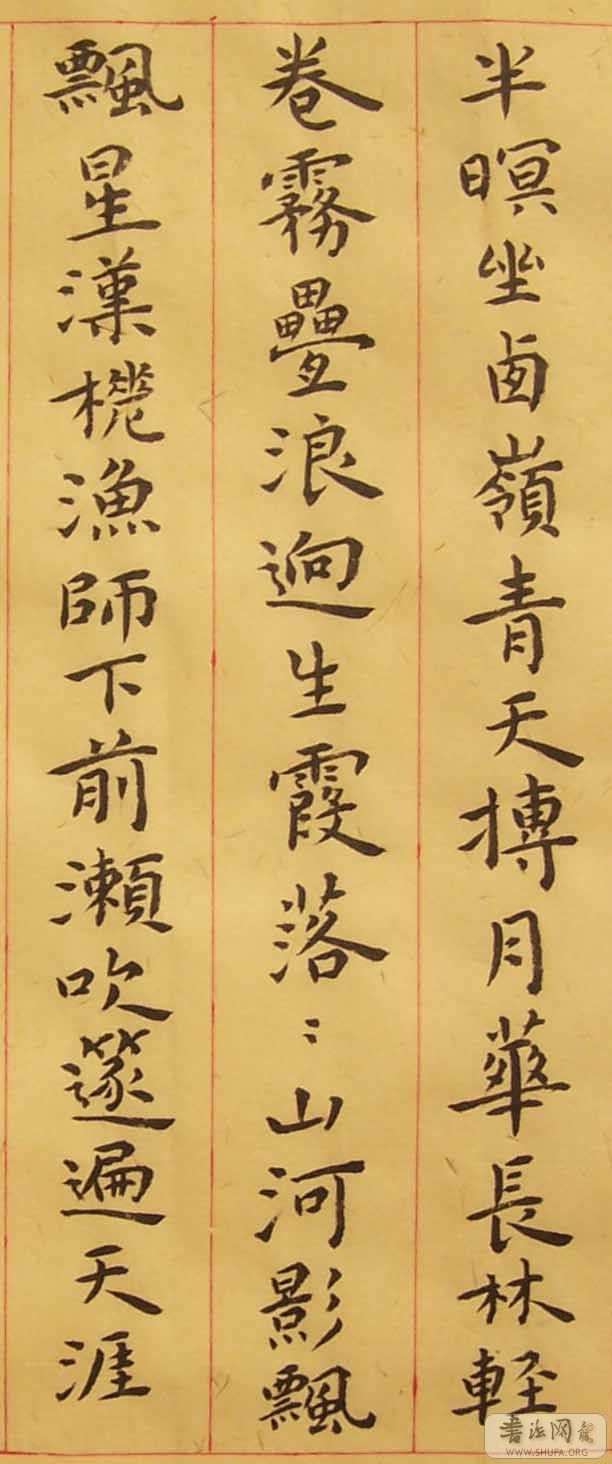 半暝坐西嶺青天摶月華長林輕
卷霧疊浪迥生霞落〻山河影飄
飄星漢槎漁師下前瀨吹篴遍天涯
書法网
WWW.SHUFA.ORG